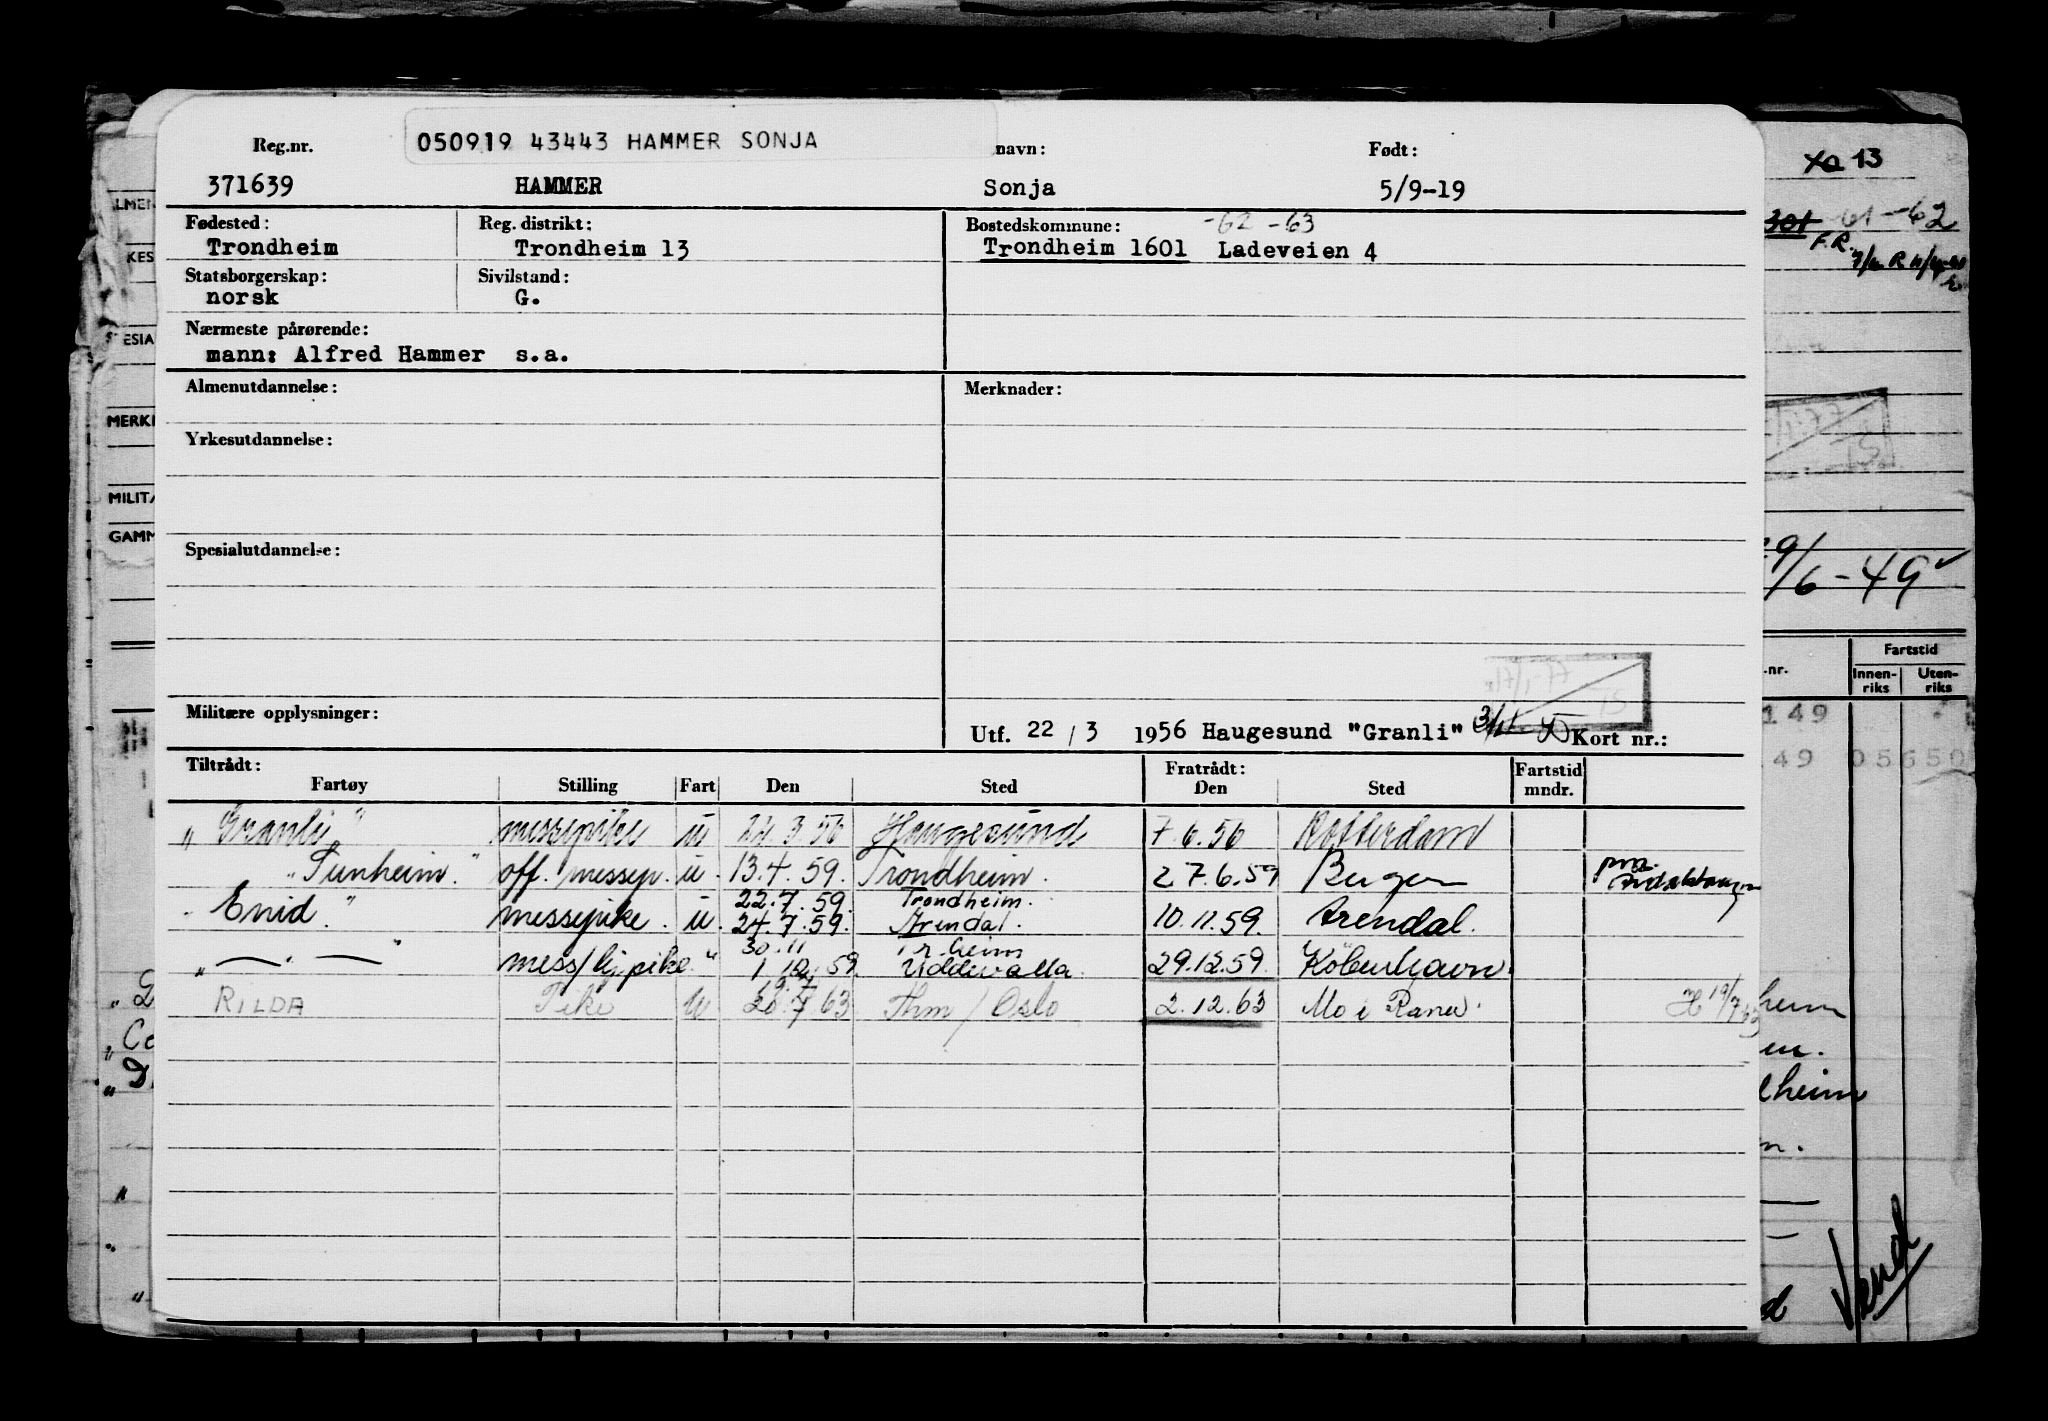 050919 43443 HAMMER SONJA
Reg.nr. navn: Født:
371639 HAMMER Sonja 5/9-19
Fødested: Reg. distrikt: Bostedskommune: -62 -63
Trondheim Trondheim 13 Trondheim 1601 Ladeveien 4
Statsborgerskap: Sivilstand:
norsk G.
Nærmeste pårørende:
mann: Alfred Hammer s.a.
Almenutdannelse: Merknader:
Yrkesutdannelse:
Spesialutdannelse:
Militære opplysninger:
Utf. 22 / 3 1956 Haugesund "Granli" Kort nr.:
Tiltrådt: Fratrådt: Fartstid
Fartøy Stilling Fart Den Sted Den Sted mndr.
"Granli" messepike u 22 3 56 Haugesund 7.6.56 Rotterdam
"Sunheim." off. messep. u. 13.4.59. Trondheim. 27.6.59 Bergen
22.7.59. Trondheim.
"Enid." messepike. u. 24.7.59. Arendal. 10.11.59. Arendal.
30.11 Tr.heim
" — . — " mess/lj.pike " 1 12 59 Uddevalla. 29.12.59. København.
RILDA Pike u 20 7 63 Thm / Oslo 2.12.63 Mo i Rana.
13
61 -62
301
F.R.
29/6-49
Fartstid
.nr. Innenriks Utenriks
149
49 05650
heim
en.
dheim
n.
d
Vend
ALMEN
KES
SPESIA
MERK
MILITÆ
GAMM